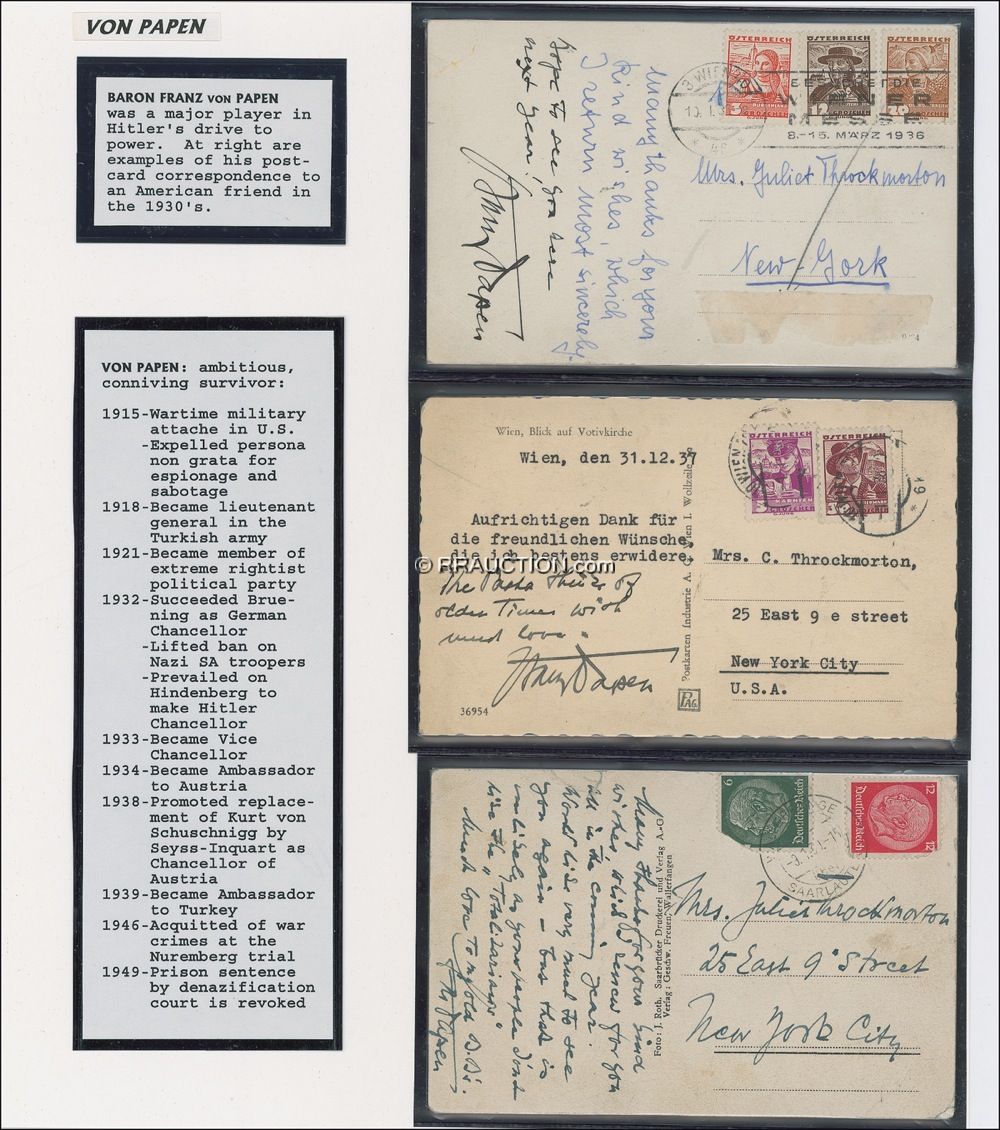 VON PAPEN
BARON FRANZ von PAPEN
was a major player in
Hitler's drive to
power. At right are
examples of his post-
card correspondence to
an American friend in
the 1930's.
VON PAPEN: ambitious,
conniving survivor:
1915-Wartime military
attache in U.S.
-Expelled persona
non grata for
espionage and
sabotage
1918-Became lieutenant
general in the
Turkish army
1921-Became member of
extreme rightist
political party
1932-Succeeded Brue-
ning as German
Chancellor
-Lifted ban on
Nazi SA troopers
-Prevailed on
Hindenberg to
make Hitler
Chancellor
1933-Became Vice
Chancellor
1934-Became Ambassador
to Austria
1938-Promoted replace-
ment of Kurt von
Schuschnigg by
Seyss-Inquart as
Chancellor of
Austria
1939-Became Ambassador
to Turkey
1946-Acquitted of war
crimes at the
Nuremberg trial
1949-Prison sentence
by denazification
court is revoked
Many thanks for your
kind wishes, which
I return most sincerely.
hope to see you here
next year!
Franz Papen
ÖSTERREICH
3 GROSCHEN
ÖSTERREICH
12 GROSCHEN
ÖSTERREICH
GROSCHEN
3 WIEN
WIENER
MESSE
8.-15. MÄRZ 1936
Mrs. Juliet Throckmorton
New-York
Wien, Blick auf Votivkirche
Wien, den 31.12.37
Aufrichtigen Dank für
die freundlichen Wünsche
die ich bestens erwidere
The Pasha thinks of
olden Times with
much love.
Franz Papen
36954
Postkarten Industrie A. G. Wien I. Wollzeile
PAG.
ÖSTERREICH
KÄRNTEN
ÖSTERREICH
WIEN
Mrs. C. Throckmorton,
25 East 9 e street
New York City
U.S.A.
© RRAUCTION.com
Many thanks for your kind
wishes which I renew for you
all in the coming year.
Would like very much to see
you again – but that is
unlikely as your people don't
like the "Totalitarians"
Much love to my old
Papen
Foto: J. Roth. Saarbrücker Druckerei und Verlag A.-G.
Verlag: Geschw. Freuen, Wallerfangen
6
Deutsches Reich
12
Deutsches Reich
12
SAARLAUTERN
Mrs. Juliet Throckmorton
25 East 9" Street
New York City